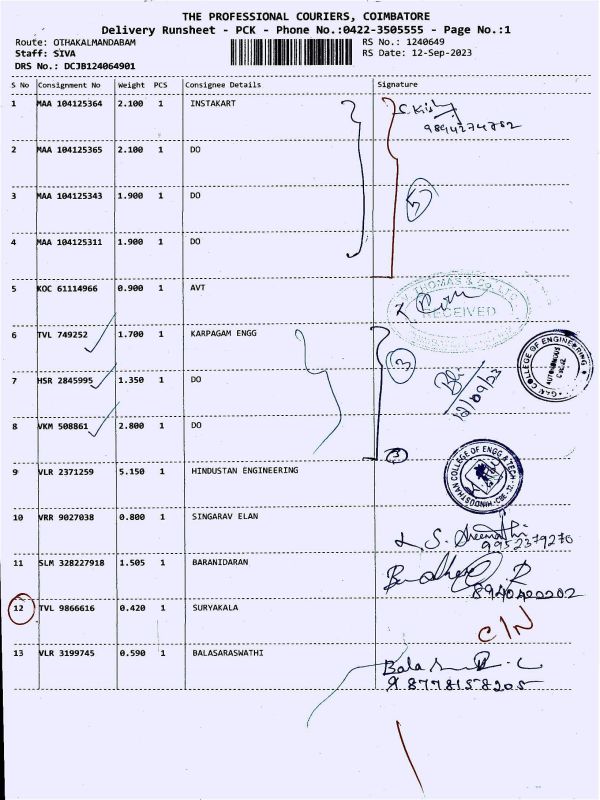 THE PROFESSIONAL COURIERS, COIMBATORE
Delivery Runsheet - PCK - Phone No.:0422-3505555 - Page No.:1
Route: OTHAKALMANDABAM RS No.: 1240649
Staff: SIVA RS Date: 12-Sep-2023
DRS No.: DCJB124064901
S No Consignment No Weight PCS Consignee Details Signature
1 MAA 104125364 2.100 1 INSTAKART
9894274782
2 MAA 104125365 2.100 1 DO
3 MAA 104125343 1.900 1 DO
5
4 MAA 104125311 1.900 1 DO
5 KOC 61114966 0.900 1 AVT
THOMAS & CO. LTD
RECEIVED
6 TVL 749252 1.700 1 KARPAGAM ENGG
3
COLLEGE OF ENGINEERING
AUTONOMOUS
7 HSR 2845995 1.350 1 DO
12/09/23
8 VKM 508861 2.800 1 DO
3
9 VLR 2371259 5.150 1 HINDUSTAN ENGINEERING
HINDUSTHAN COLLEGE OF ENGG & TECH
10 VRR 9027038 0.800 1 SINGARAV ELAN
9952379270
11 SLM 328227918 1.505 1 BARANIDARAN
8940400202
12 TVL 9866616 0.420 1 SURYAKALA
C/N
13 VLR 3199745 0.590 1 BALASARASWATHI
8778158205